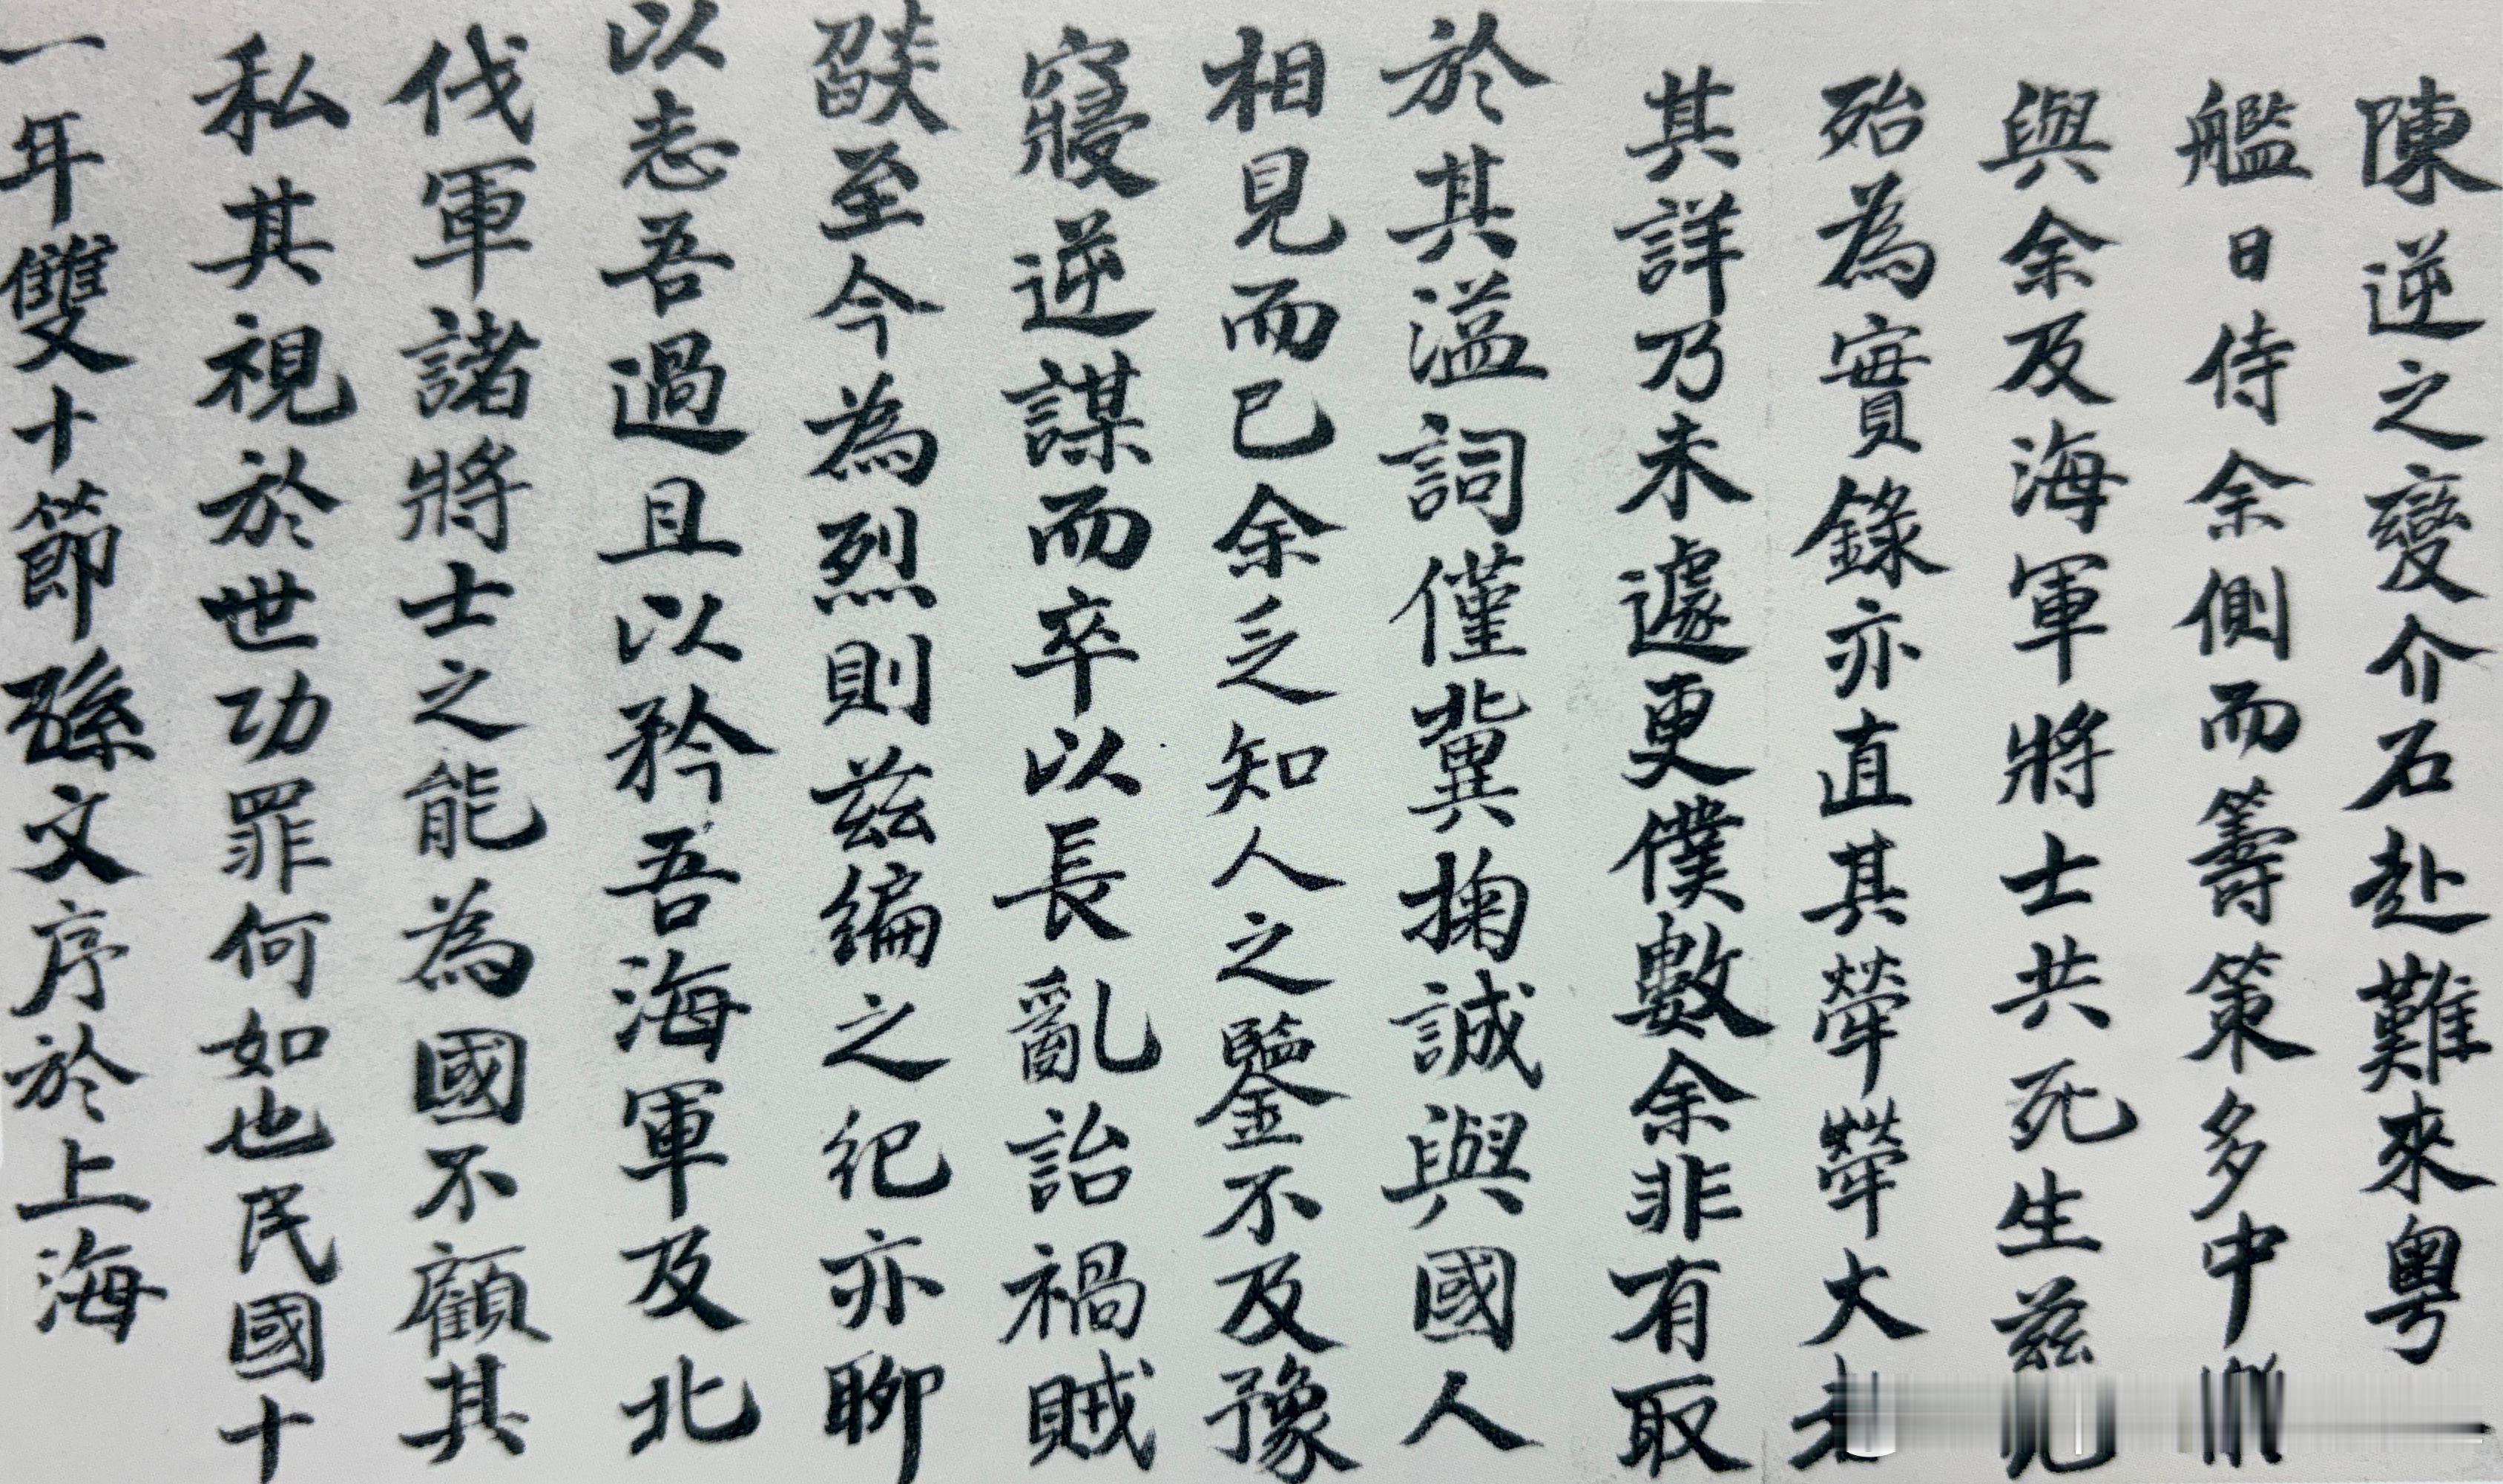 陳逆之變介石赴難來粵
艦日侍余側而籌策多中
與余及海軍將士共死生茲
殆為實錄亦直其犖犖大
其詳乃未遽更僕數余非有取
於其溢詞僅冀掬誠與國人
相見而已余乏知人之鑒不及豫
寢逆謀而卒以長亂詒禍賊
燄至今為烈則茲編之紀亦聊
以志吾過且以矜吾海軍及北
伐軍諸將士之能為國不顧其
私其視於世功罪何如也民國十
一年雙十節孫文序於上海